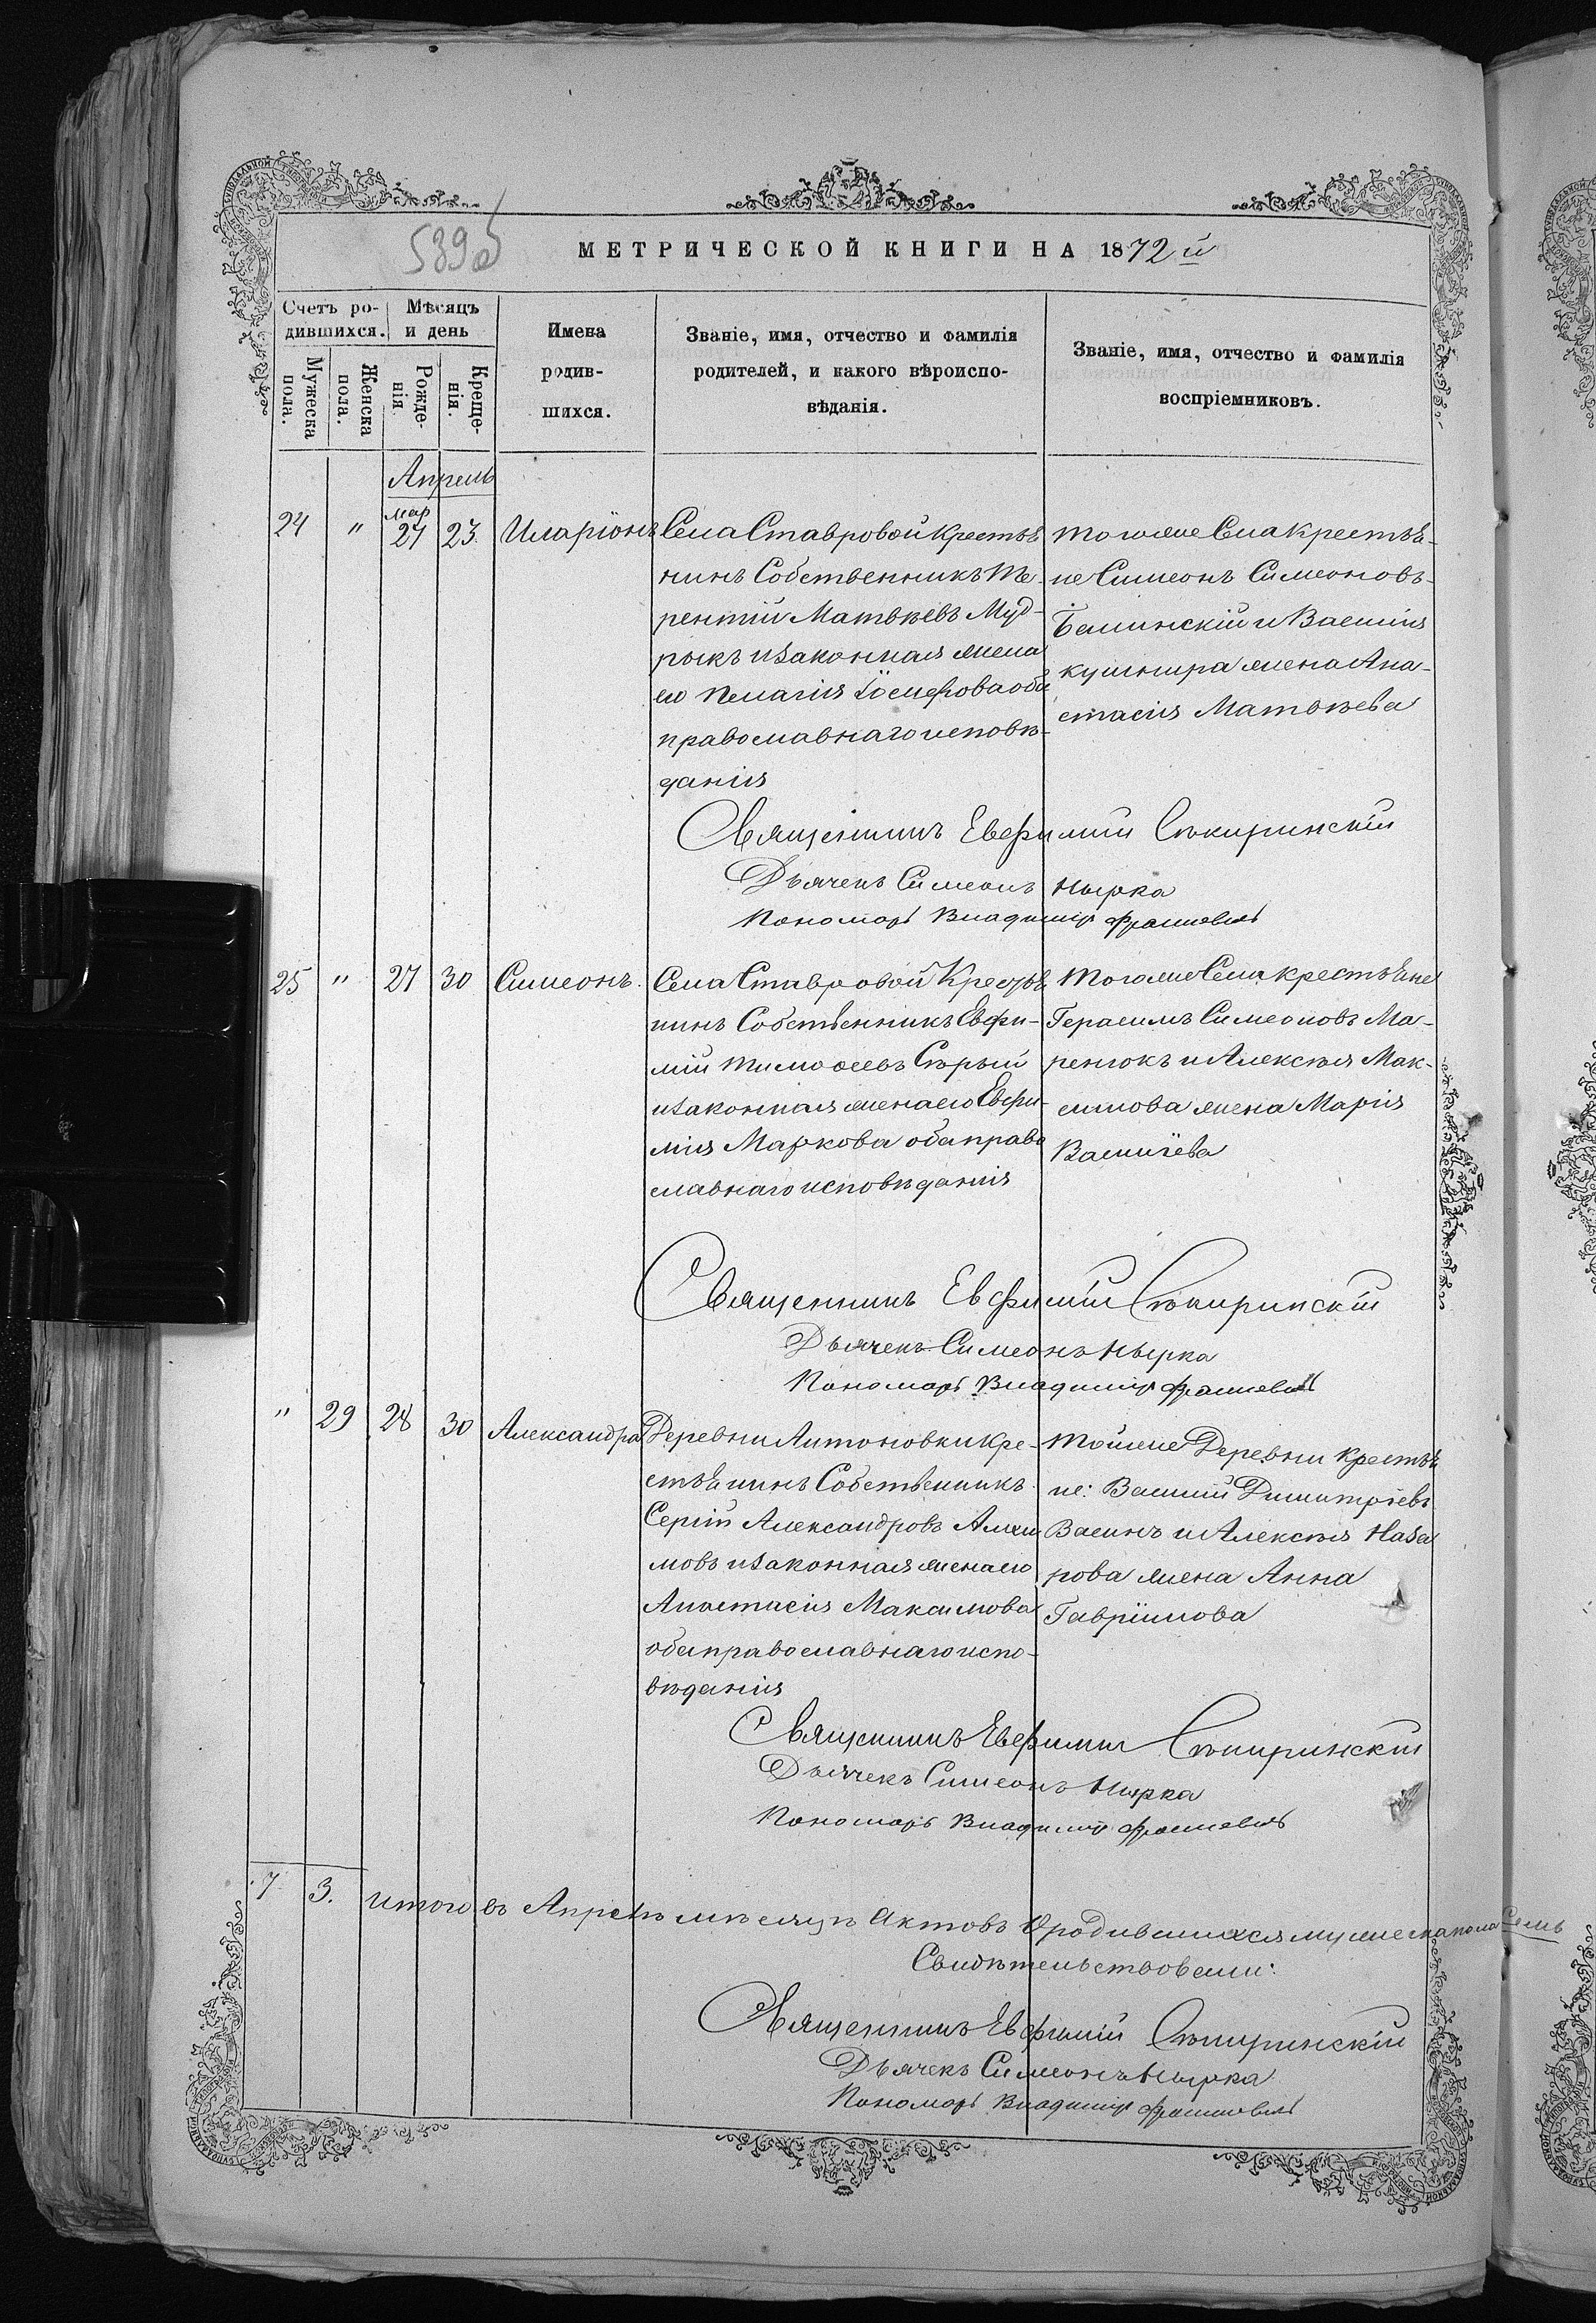 539об
МЕТРИЧЕСКОЙ КНИГИ НА 1872й
Счетъ ро-
дившихся.
Мужеска
пола.
Женска
пола.
Мѣсяцъ
и день
Рожде-
нія
Креще-
нія.
Имена
родив-
шихся.
Званіе, имя, отчество и фамилія
родителей, и какого вѣроиспо-
вѣданія.
Званіе, имя, отчество и фамилія
воспріемниковъ.
Апрель
24 " Мар 27 23. Иларіонъ
Села Ставровой Крестья
нинъ Собственникъ Те-
рентій Матвѣевъ Муд-
рыкъ и законная жена
его Пелагія Іосифова оба
православнаго исповѣ-
данія
того же Села крестья-
не Симеонъ Симеоновъ
Балинскій и Василія
кушнира жена Ана-
стасія Матвѣева
Священникъ Евфимій Сѣкиринскій
Дьячекъ Симеонъ Нырка
Пономарь Владиміръ
25 " 27 30 Симеонъ.
Села Ставровой Крестья
нинъ Собственникъ Евфи-
мій Тимофеевъ Сѣрый
и законная жена его Евфи-
мія Маркова оба право
славнаго исповѣданія
Того же Села крестьяне
Герасимъ Симеоновъ Ма-
ренюкъ и Алексѣя Мак-
симова жена Марія
Василіева
Священникъ Евфимій Сѣкиринскій
Дьячекъ Симеонъ Нырка
Пономарь Владиміръ
" 29 28 30 Александра
Деревни Антоновки Кре-
стьянинъ Собственникъ
Сергій Александровъ
и законная жена его
Анастасія Максимова
оба православнаго испо-
вѣданія
той же Деревни крестья
не: Василій Димитріевъ
Васинъ и Алексѣя Наза
рова жена Анна
Гавріилова
Священникъ Евфимій Сѣкиринскій
Дьячекъ Симеонъ Нырка
Пономарь Владиміръ
7 3. Итого въ Апрелѣ мѣсяцѣ Актовъ О родившихся мужеска пола Семь
Свидѣтельствовали:
Священникъ Евфимій Сѣкиринскій
Дьячекъ Симеонъ Нырка
Пономарь Владиміръ